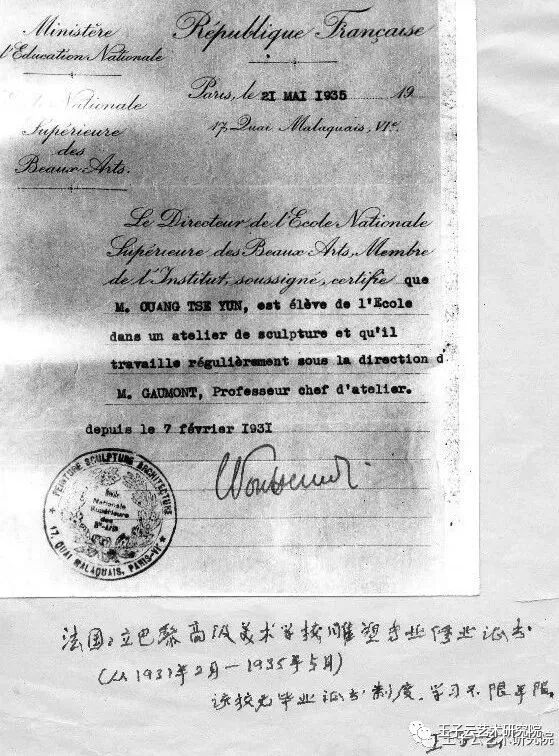 Ministère
de l'Education Nationale
République Française
Paris, le 21 MAI 1935 19
17, Quai Malaquais, VIe.
Nationale
Supérieure
des
Beaux-Arts.
Le Directeur de l'Ecole Nationale
Supérieure des Beaux-Arts, Membre
de l'Institut, soussigné, certifie que
M. OUANG TSE YUN, est élève de l'Ecole
dans un atelier de sculpture et qu'il
travaille régulièrement sous la direction d
M. GAUMONT, Professeur chef d'atelier.
depuis le 7 février 1931
PEINTURE SCULPTURE ARCHITECTURE
Ecole
Nationale
Supérieure
des
Bx-Arts
17, QUAI MALAQUAIS, PARIS-VIe
法国国立巴黎高级美术学校雕塑专业修业证书
(从1931年2月—1935年5月)
该校无毕业证书制度，学习不限年限。
王子云艺术研究院